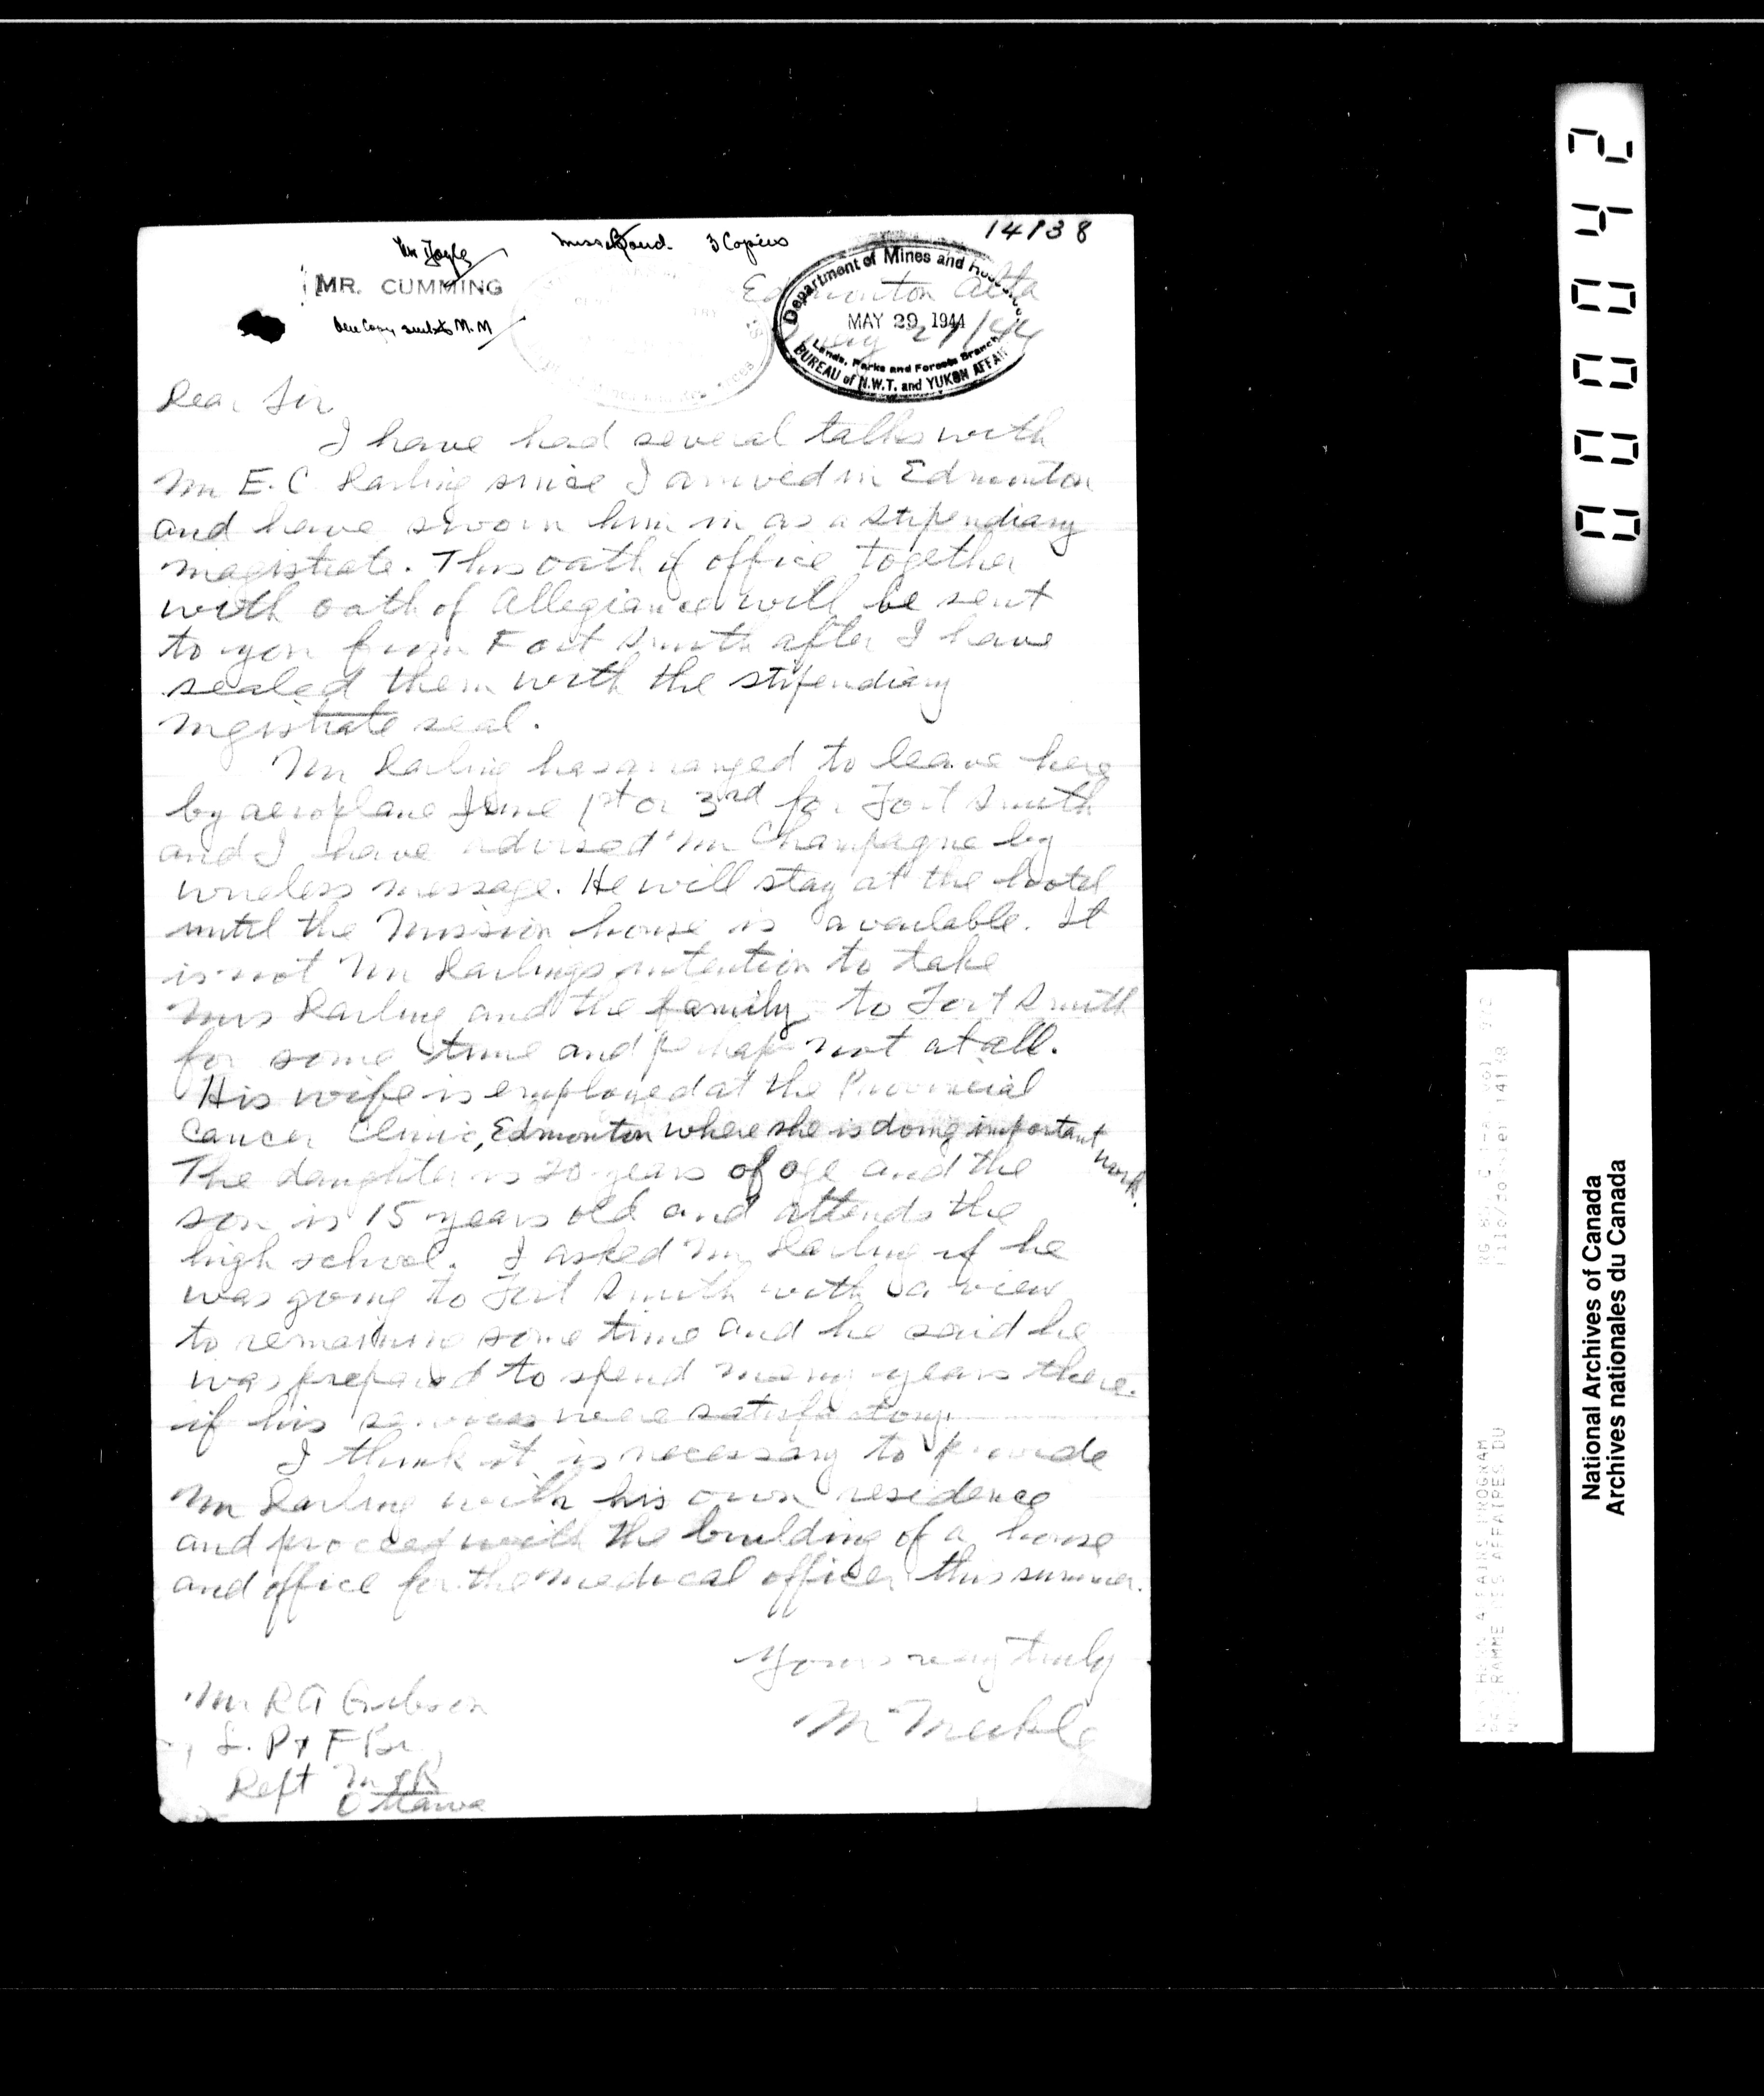 14138
Mr Doyle
3 Copies
MR. CUMMING
One Copy sent to M.M
Department of Mines and Resources
MAY 29 1944
Lands, Parks and Forests Branch
BUREAU of N.W.T. and YUKON AFFAIRS
Edmonton Alta
May 27/44
Dear Sir
I have had several talks with
Mr E. C. Darling since I arrived in Edmonton
and have sworn him in as a stipendiary
magistrate. This oath of office together
with oath of Allegiance will be sent
to you from Fort Smith after I have
sealed them with the stipendiary
mgistrate seal.
Mr Darling has arranged to leave here
by aeroplane June 1st or 3rd for Fort Smith
and I have advised Mr Champagne by
wireless message. He will stay at the hotel
until the Mission house is available. It
is not Mr Darlings intention to take
Mrs Darling and the family to Fort Smith
for some time and perhaps not at all.
His wife is employed at the Provincial
Cancer Clinic, Edmonton where she is doing important work.
The daughter is 20 years of age and the
son is 15 years old and attends the
high school. I asked Mr Darling if he
was going to Fort Smith with a view
to remaining some time and he said he
was prepared to spend many years there
if his services were satisfactory.
I think it is necessary to provide
Mr Darling with his own residence
and proceed with the building of a house
and office for the medical officer this summer.
Yours very truly
M Meikle
Mr R A Gibson
L. P & F Br,
Dept M & R
Ottawa
0000042
National Archives of Canada
Archives nationales du Canada